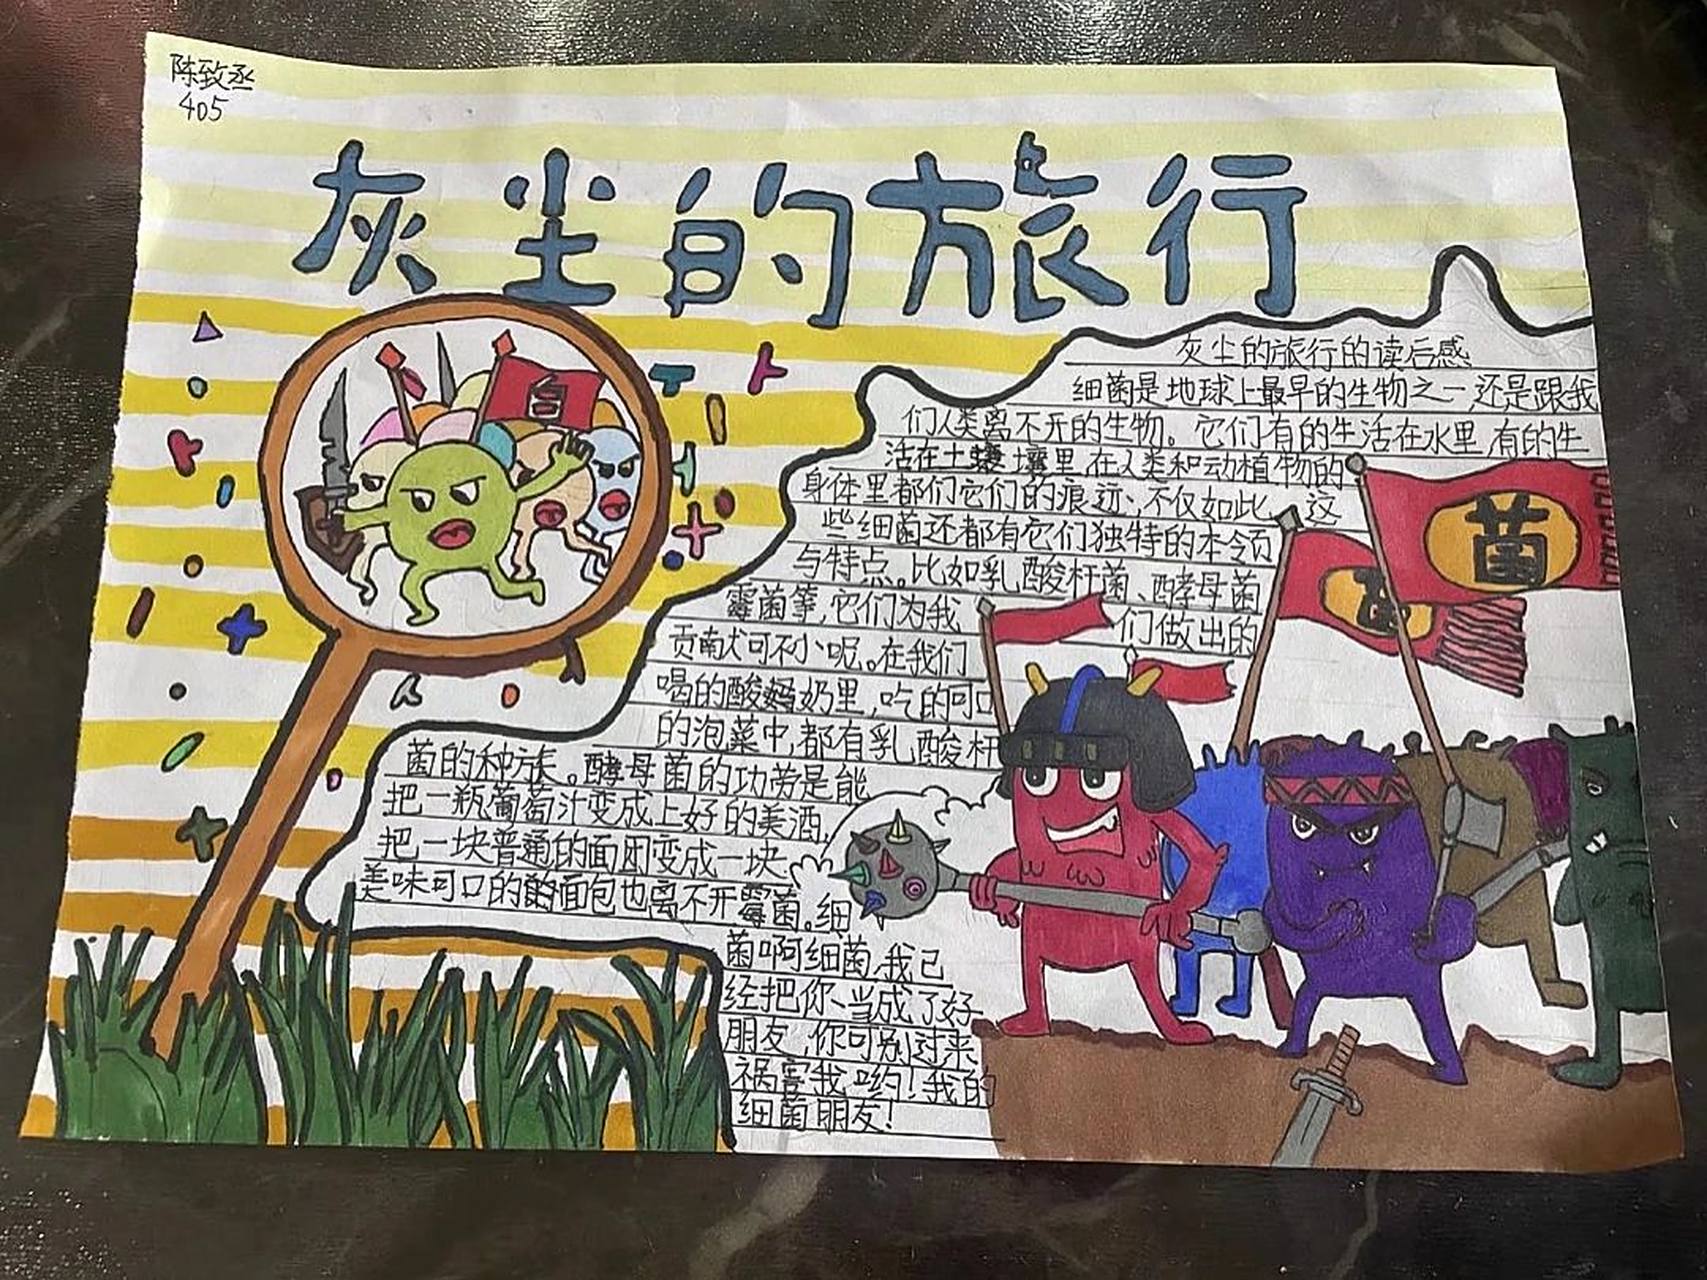 陈致丞
405
灰尘的旅行
白
灰尘的旅行的读后感
细菌是地球上最早的生物之一,还是跟我
们人类离不开的生物。它们有的生活在水里,有的生
活在土壤里,在人类和动植物的
身体里都们它们的痕迹、不仅如此、这
些细菌还都有它们独特的本领
与特点。比如乳酸杆菌、酵母菌
霉菌等,它们为我们做出的
贡献可不小呢。在我们
喝的酸奶里,吃的可口
的泡菜中,都有乳酸杆
菌的种族。酵母菌的功劳是能
把一瓶葡萄汁变成上好的美酒,
把一块普通的面团变成一块
美味可口的面包也离不开霉菌。细
菌啊细菌,我已
经把你当成了好
朋友,你可别过来
祸害我哟!我的
细菌朋友!
菌
菌